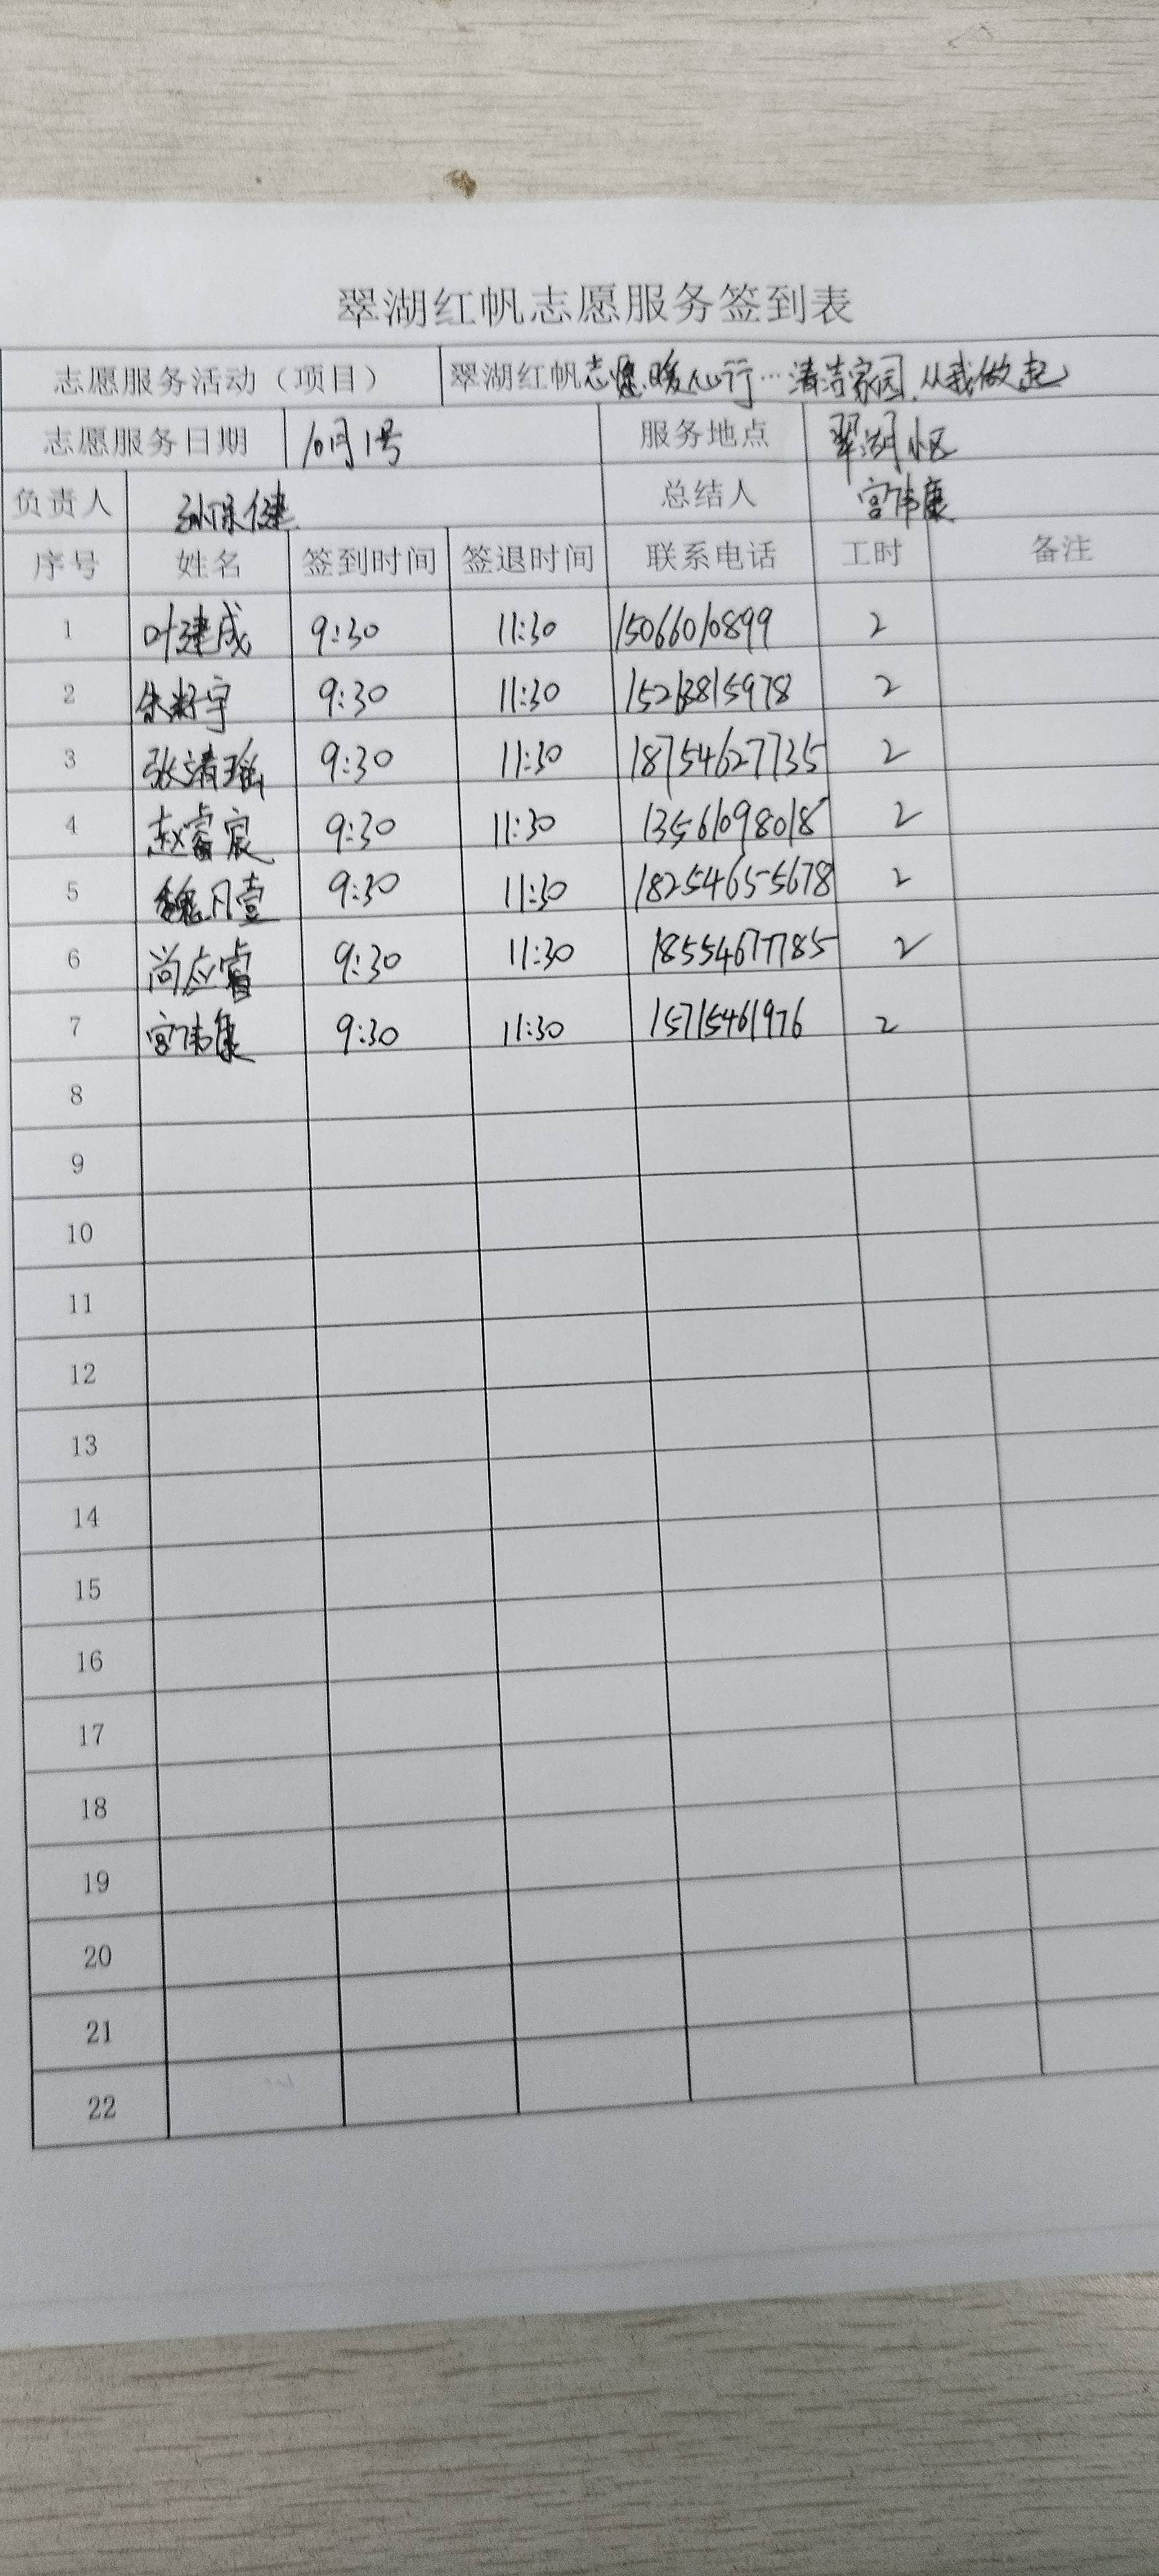 翠湖红帆志愿服务签到表
志愿服务活动（项目） 翠湖红帆志愿暖心行…清洁家园、从我做起
志愿服务日期 10月1号 服务地点 翠湖小区
负责人 孙保健 总结人 宫伟康
序号 姓名 签到时间 签退时间 联系电话 工时 备注
1 叶建成 9:30 11:30 15066010899 2
2 9:30 11:30 15213815978 2
3 张清瑶 9:30 11:30 18754627735 2
4 赵睿宸 9:30 11:30 13561098018 2
5 魏凡壹 9:30 11:30 18254655678 2
6 尚应睿 9:30 11:30 18554677785 2
7 宫伟康 9:30 11:30 15715461976 2
8
9
10
11
12
13
14
15
16
17
18
19
20
21
22